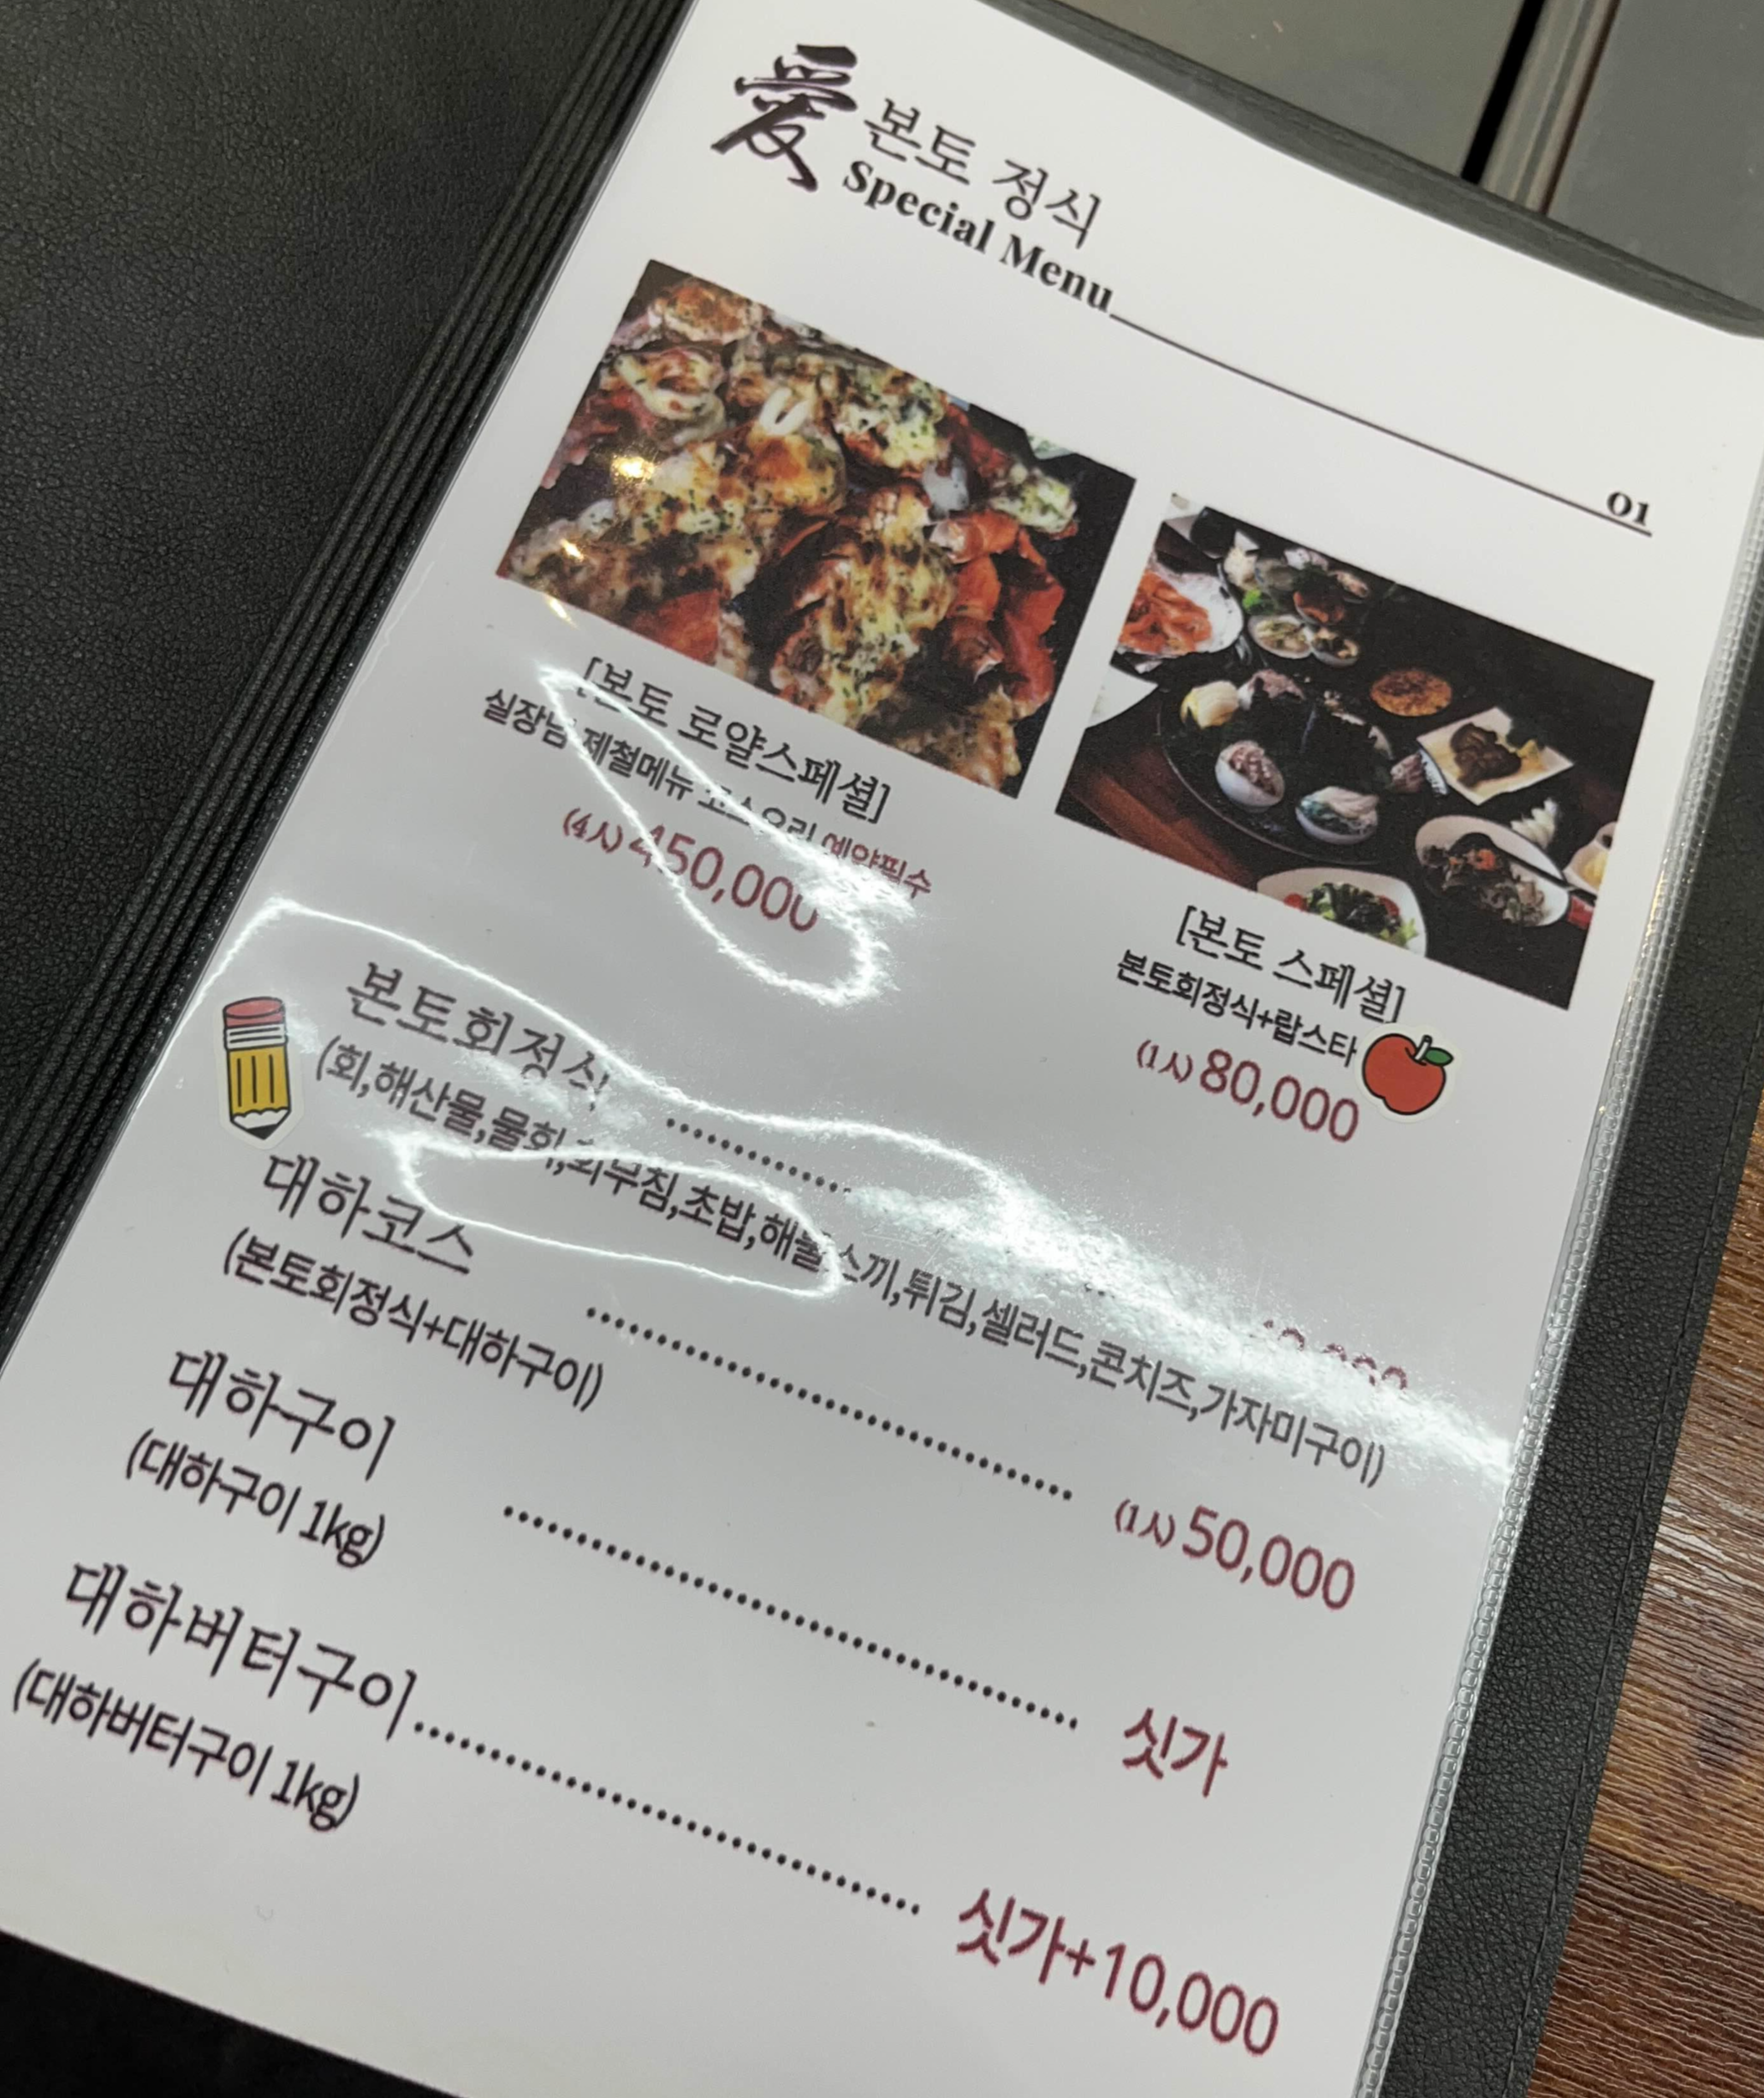 愛 본토 정식
Special Menu
01
[본토 로얄스페셜]
실장님 제철메뉴 코스요리 예약필수
(4人) 450,000
[본토 스페셜]
본토회정식+랍스타
(1人) 80,000
본토회정식 ..............
(회,해산물,물회,회무침,초밥,해물 스끼,튀김,셀러드,콘치즈,가자미구이)
대하코스 .............................. (1人) 50,000
(본토회정식+대하구이)
대하구이 .............................. 싯가
(대하구이 1kg)
대하버터구이.............................. 싯가+10,000
(대하버터구이 1kg)